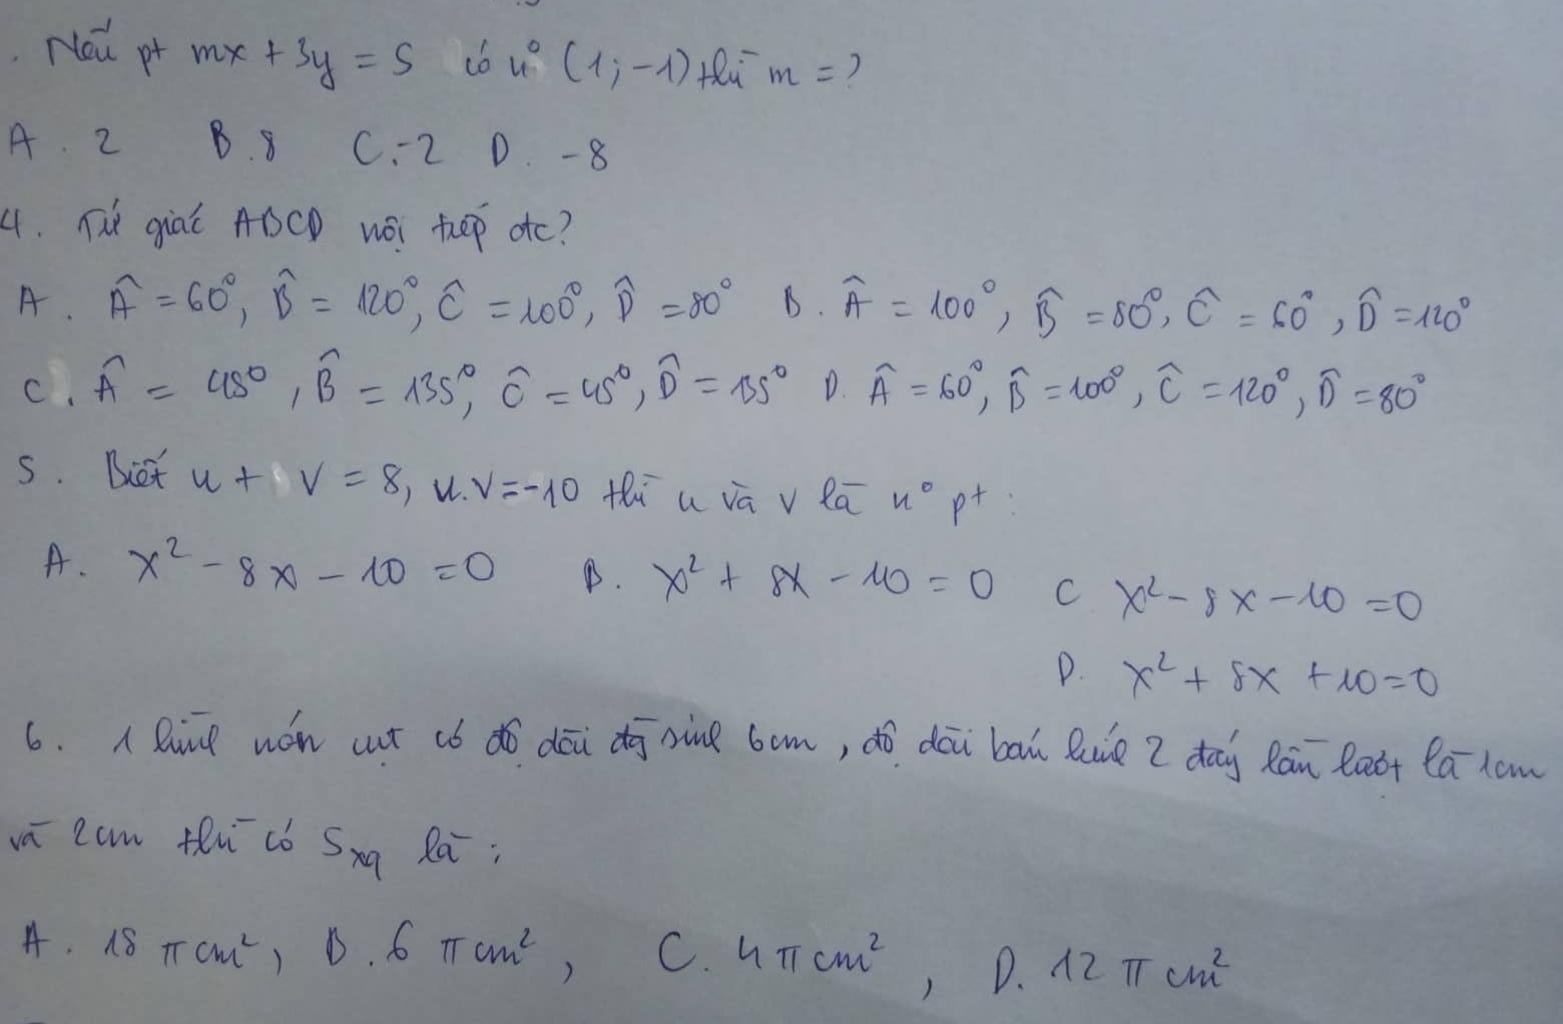 . Nếu pt mx + 3y = 5 có n° (1; -1) thì m = ?
A. 2 B. 8 C. -2 D. -8
4. Tứ giác ABCD nội tiếp đtc?
A. Â = 60°, B̂ = 120°, Ĉ = 100°, D̂ = 80° B. Â = 100°, B̂ = 80°, Ĉ = 60°, D̂ = 120°
C. Â = 45°, B̂ = 135°, Ĉ = 45°, D̂ = 135° D. Â = 60°, B̂ = 100°, Ĉ = 120°, D̂ = 80°
5. Biết u + v = 8, u.v = -10 thì u và v là n° pt:
A. x² - 8x - 10 = 0 B. x² + 8x - 10 = 0 C x² - 8x - 10 = 0
D. x² + 8x + 10 = 0
6. 1 hình nón cụt có độ dài đg sinh 6cm, độ dài bán kính 2 đáy lần lượt là 1cm
và 2cm thì có Sxq là:
A. 18 π cm², B. 6 π cm², C. 4 π cm², D. 12 π cm²